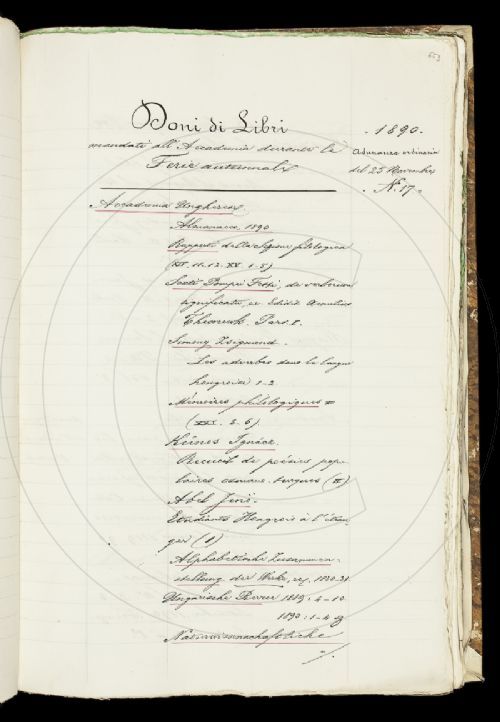 653
Doni di Libri
mandati all'Accademia durante le
Ferie autunnali
. 1890.
Adunanza ordinaria
del 23 Novembre
. N. 17.
Accademia Ungherese.
Almanacco. 1890
Rapporti della classe filologica
(XIV. 11-12. XV. 1-5)
Sexti Pompei Festi, de verborum
significatu, ed. Edidit Aemilius
Thewrewk. Pars. I.
Simony Zsigmond.
Les adverbes dans la langue
hongroise 1-2
Mémoires philologiques
(XXI. 3-6).
Kúnos Ignácz.
Recueil de poésies popu-
laires osmans-turques (II)
Abel Jenő.
Etudiants Hongrois à l'étran-
ger (1)
Alphabetische Zusammen-
stellung der Werke,
Ungarische Revue 1889: 4-10
1890: 1-4
Naturwissenschaftliche
./.